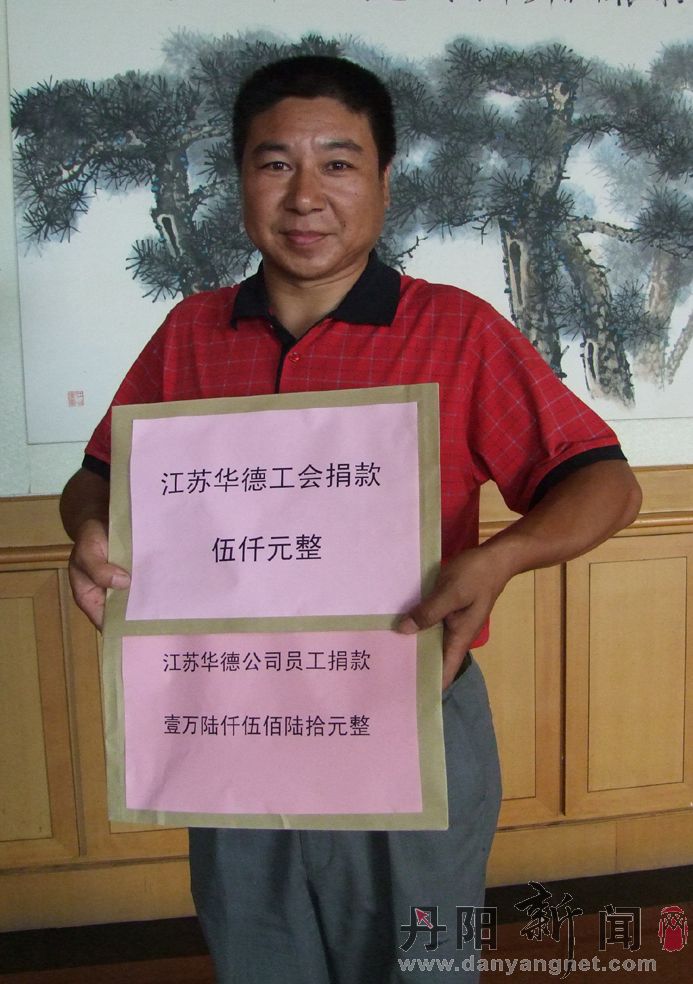 江苏华德工会捐款
伍仟元整
江苏华德公司员工捐款
壹万陆仟伍佰陆拾元整
丹阳新闻网
www.danyangnet.com